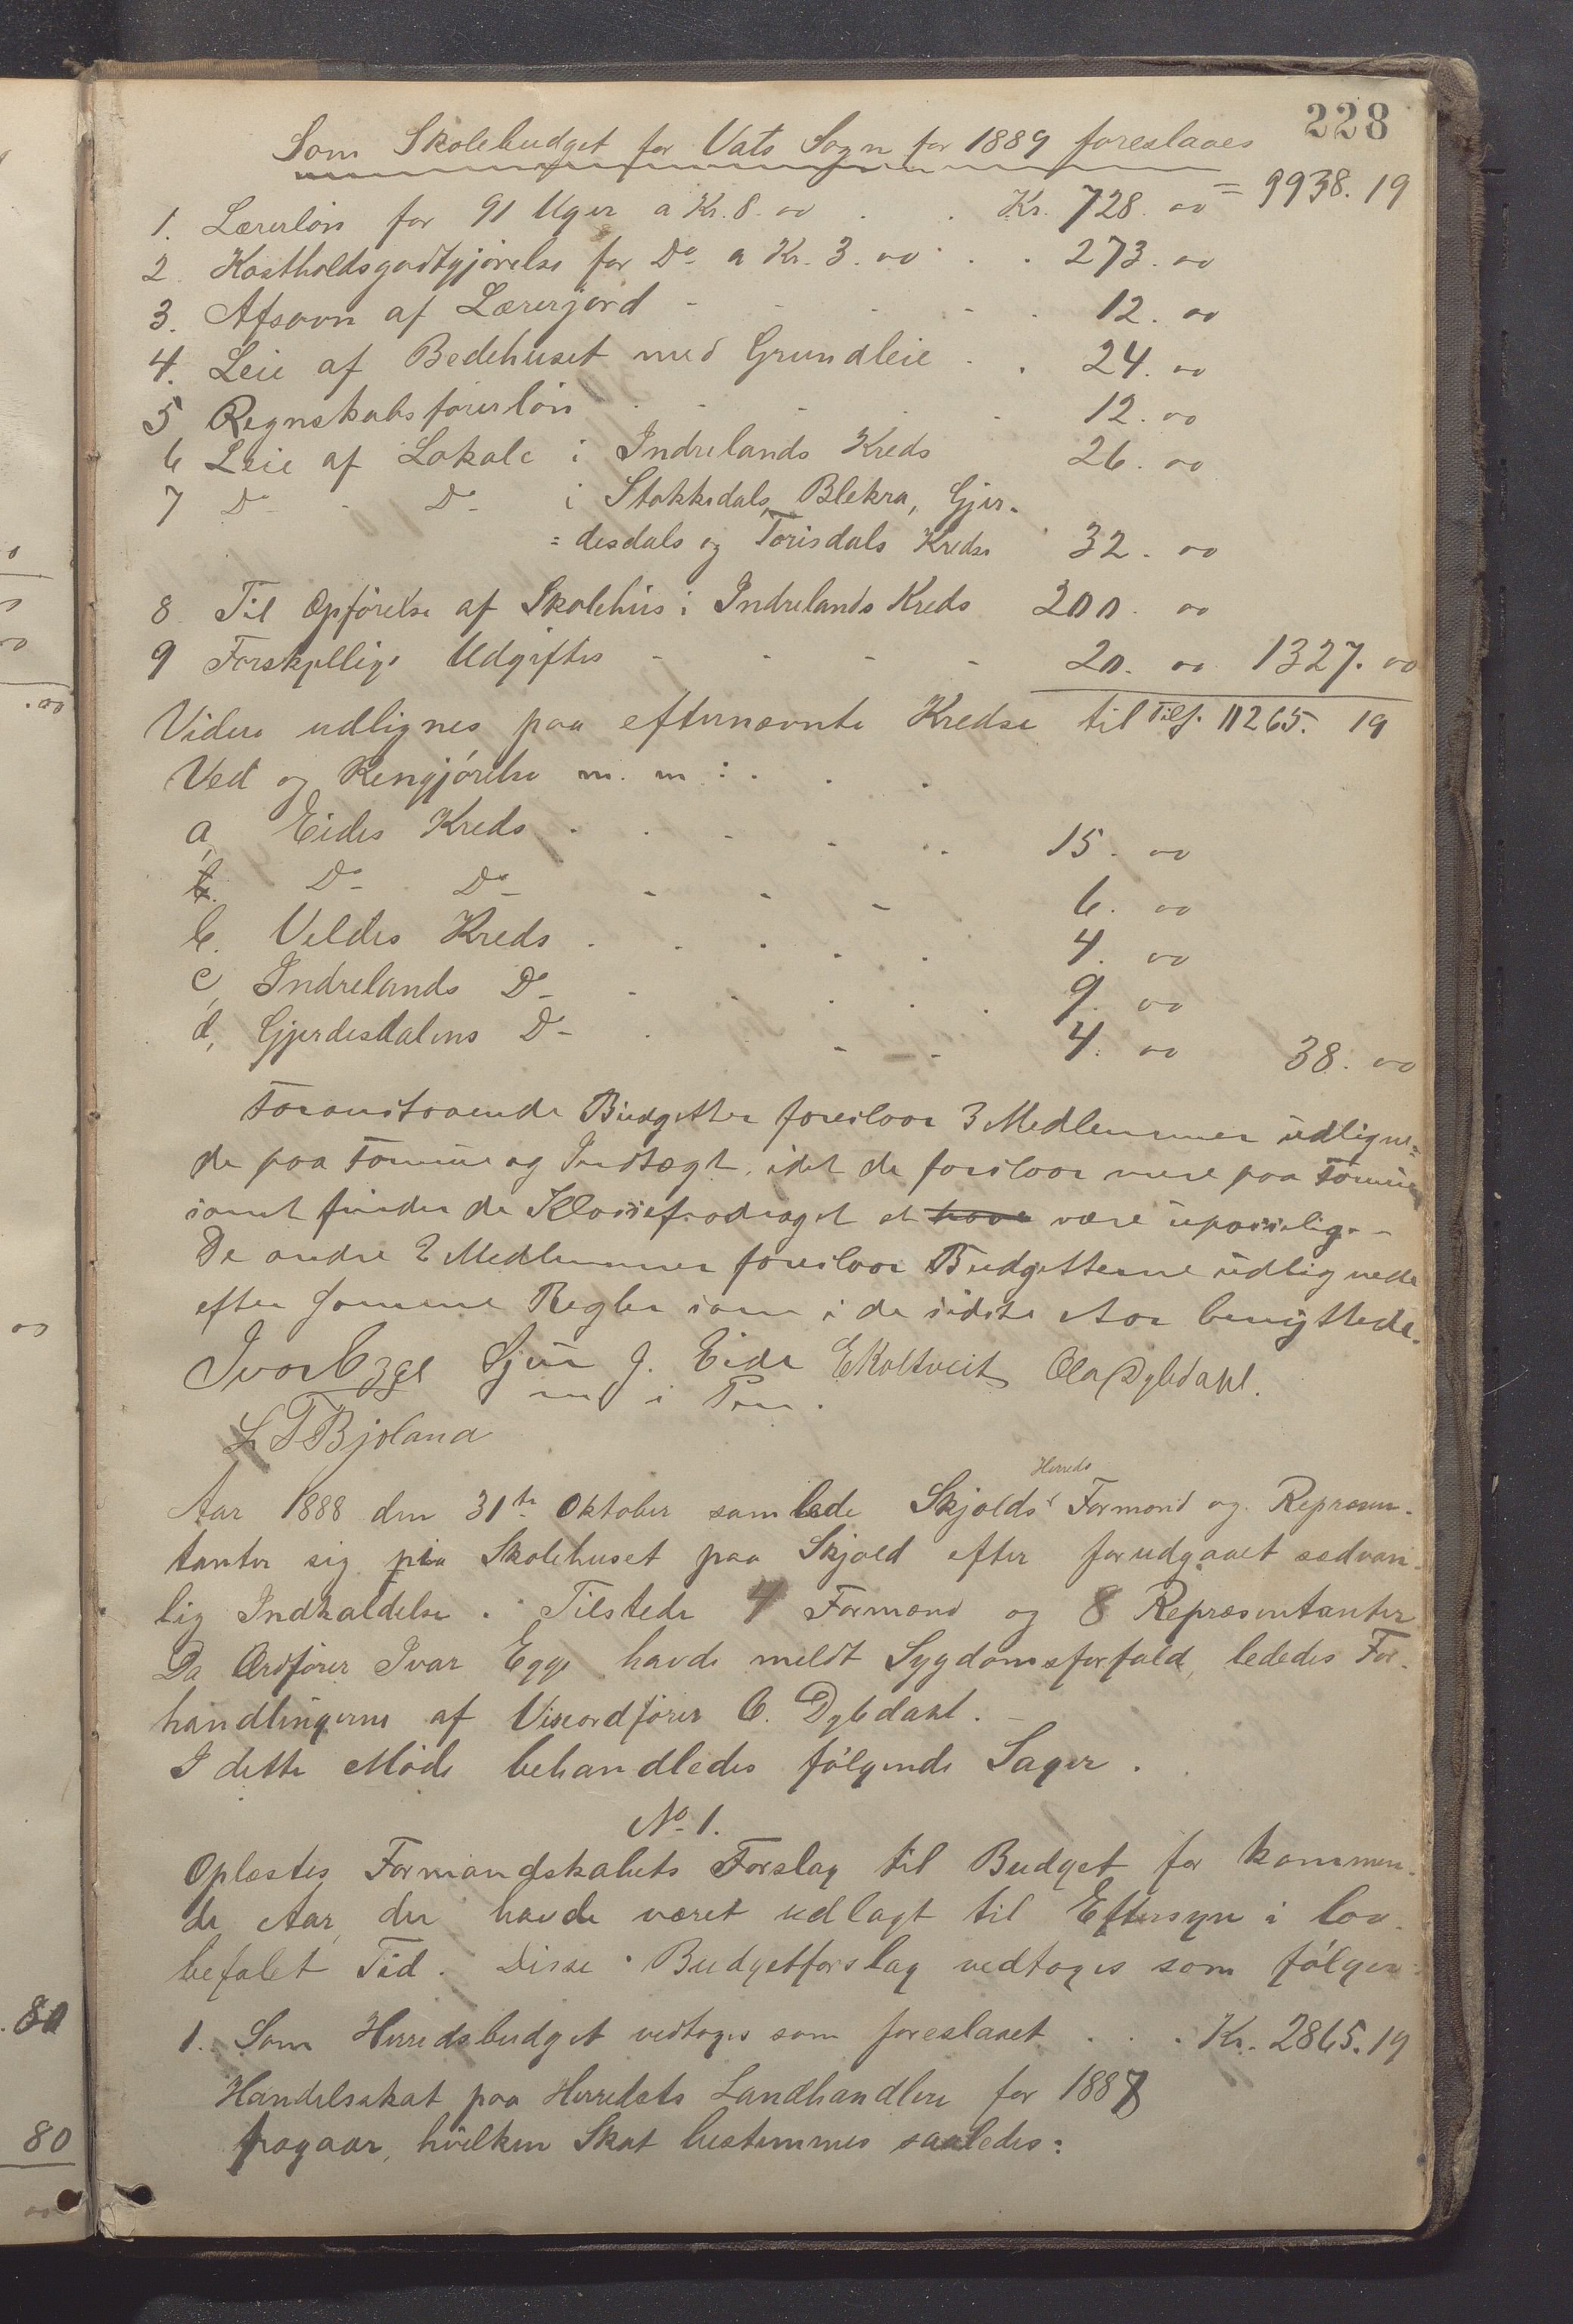 228
Som Skolebudget for Vats Sogn for 1889 foreslaaes
= 9938. 19
1. Lærerløn for 91 Uger a Kr. 8. oo . . Kr. 728. oo
2 Kostholdsgodtgjørelse for Do a Kr. 3. oo . . 273. oo
3. Afsavn af Lærerjord - - - - . 12. oo
4. Leie af Bedehuset med Grundleie . . 24. oo
5 Regnskabsførerløn . - - - - 12. oo
6 Leie af Lokale i Indrelands Kreds 26. oo
7 Do - Do i Stokkedals, Blekra, Gjer-
= desdals og Torisdals Kredse 32. oo
8 Til Opførelse af Skolehus i Indrelands Kreds 200. oo
9 Forskjellige Udgifter - - - - 20. oo 1327. oo
Videre udlignes paa efternævnte Kredse til Tils. 11265. 19
Ved og Rengjørelse m. m : . . .
a, Eides Kreds . . - - . . 15. oo
b. Do Do - - - 6. oo
b. Veldes Kreds . . . . . 4. oo
c, Indrelands Do - - . . . 9. oo
d, Gjerdesdalens Do . - - 4. oo 38. oo
Foranstaaende Budgetter foreslaar 3 Medlemmer udligne-
de paa Formue og Indtægt, idet de foreslaar mere paa Formue
samt finder de Klassefradraget at have være upasselig. -
De andre 2 Medlemmer foreslaar Budgetterne udlignede
efter samme Regler som i de sidste Aar benyttede.
Ivar Egge Sjur J. Eide E Koltveit Ola Dybdahl.
m i Pen.
L T Bjoland
Aar 1888 den 31te Oktober samlede Skjolds Herreds Formænd og Repræsen-
tanter sig paa Skolehuset paa Skjold efter forudgaaet sædvan-
lig Indkaldelse. Tilstede 4 Formænd og 8 Repræsentanter
Da Ordfører Ivar Egge havde meldt Sygdomsforfald, lededes For-
handlingerne af Viseordfører O. Dybdahl. -
I dette Møde behandledes følgende Sager.
No 1.
Oplæstes Formandskabets Forslag til Budget for kommen-
de Aar, der havde været udlagt til Eftersyn i lov-
befalet Tid. Disse Budgetforslag vedtoges som følger:
1. Som Herredsbudget vedtoges som foreslaaet . . . Kr. 2865.19
Handelsskat paa Herredets Landhandlere for 1887
fragaar, hvilken Skat bestemmes saaledes:
80
80